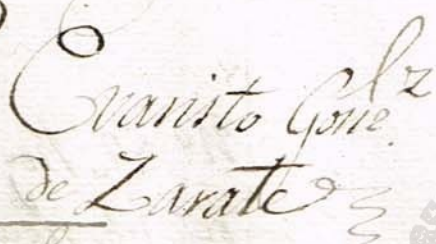 Evaristo Gonz
de Zarate